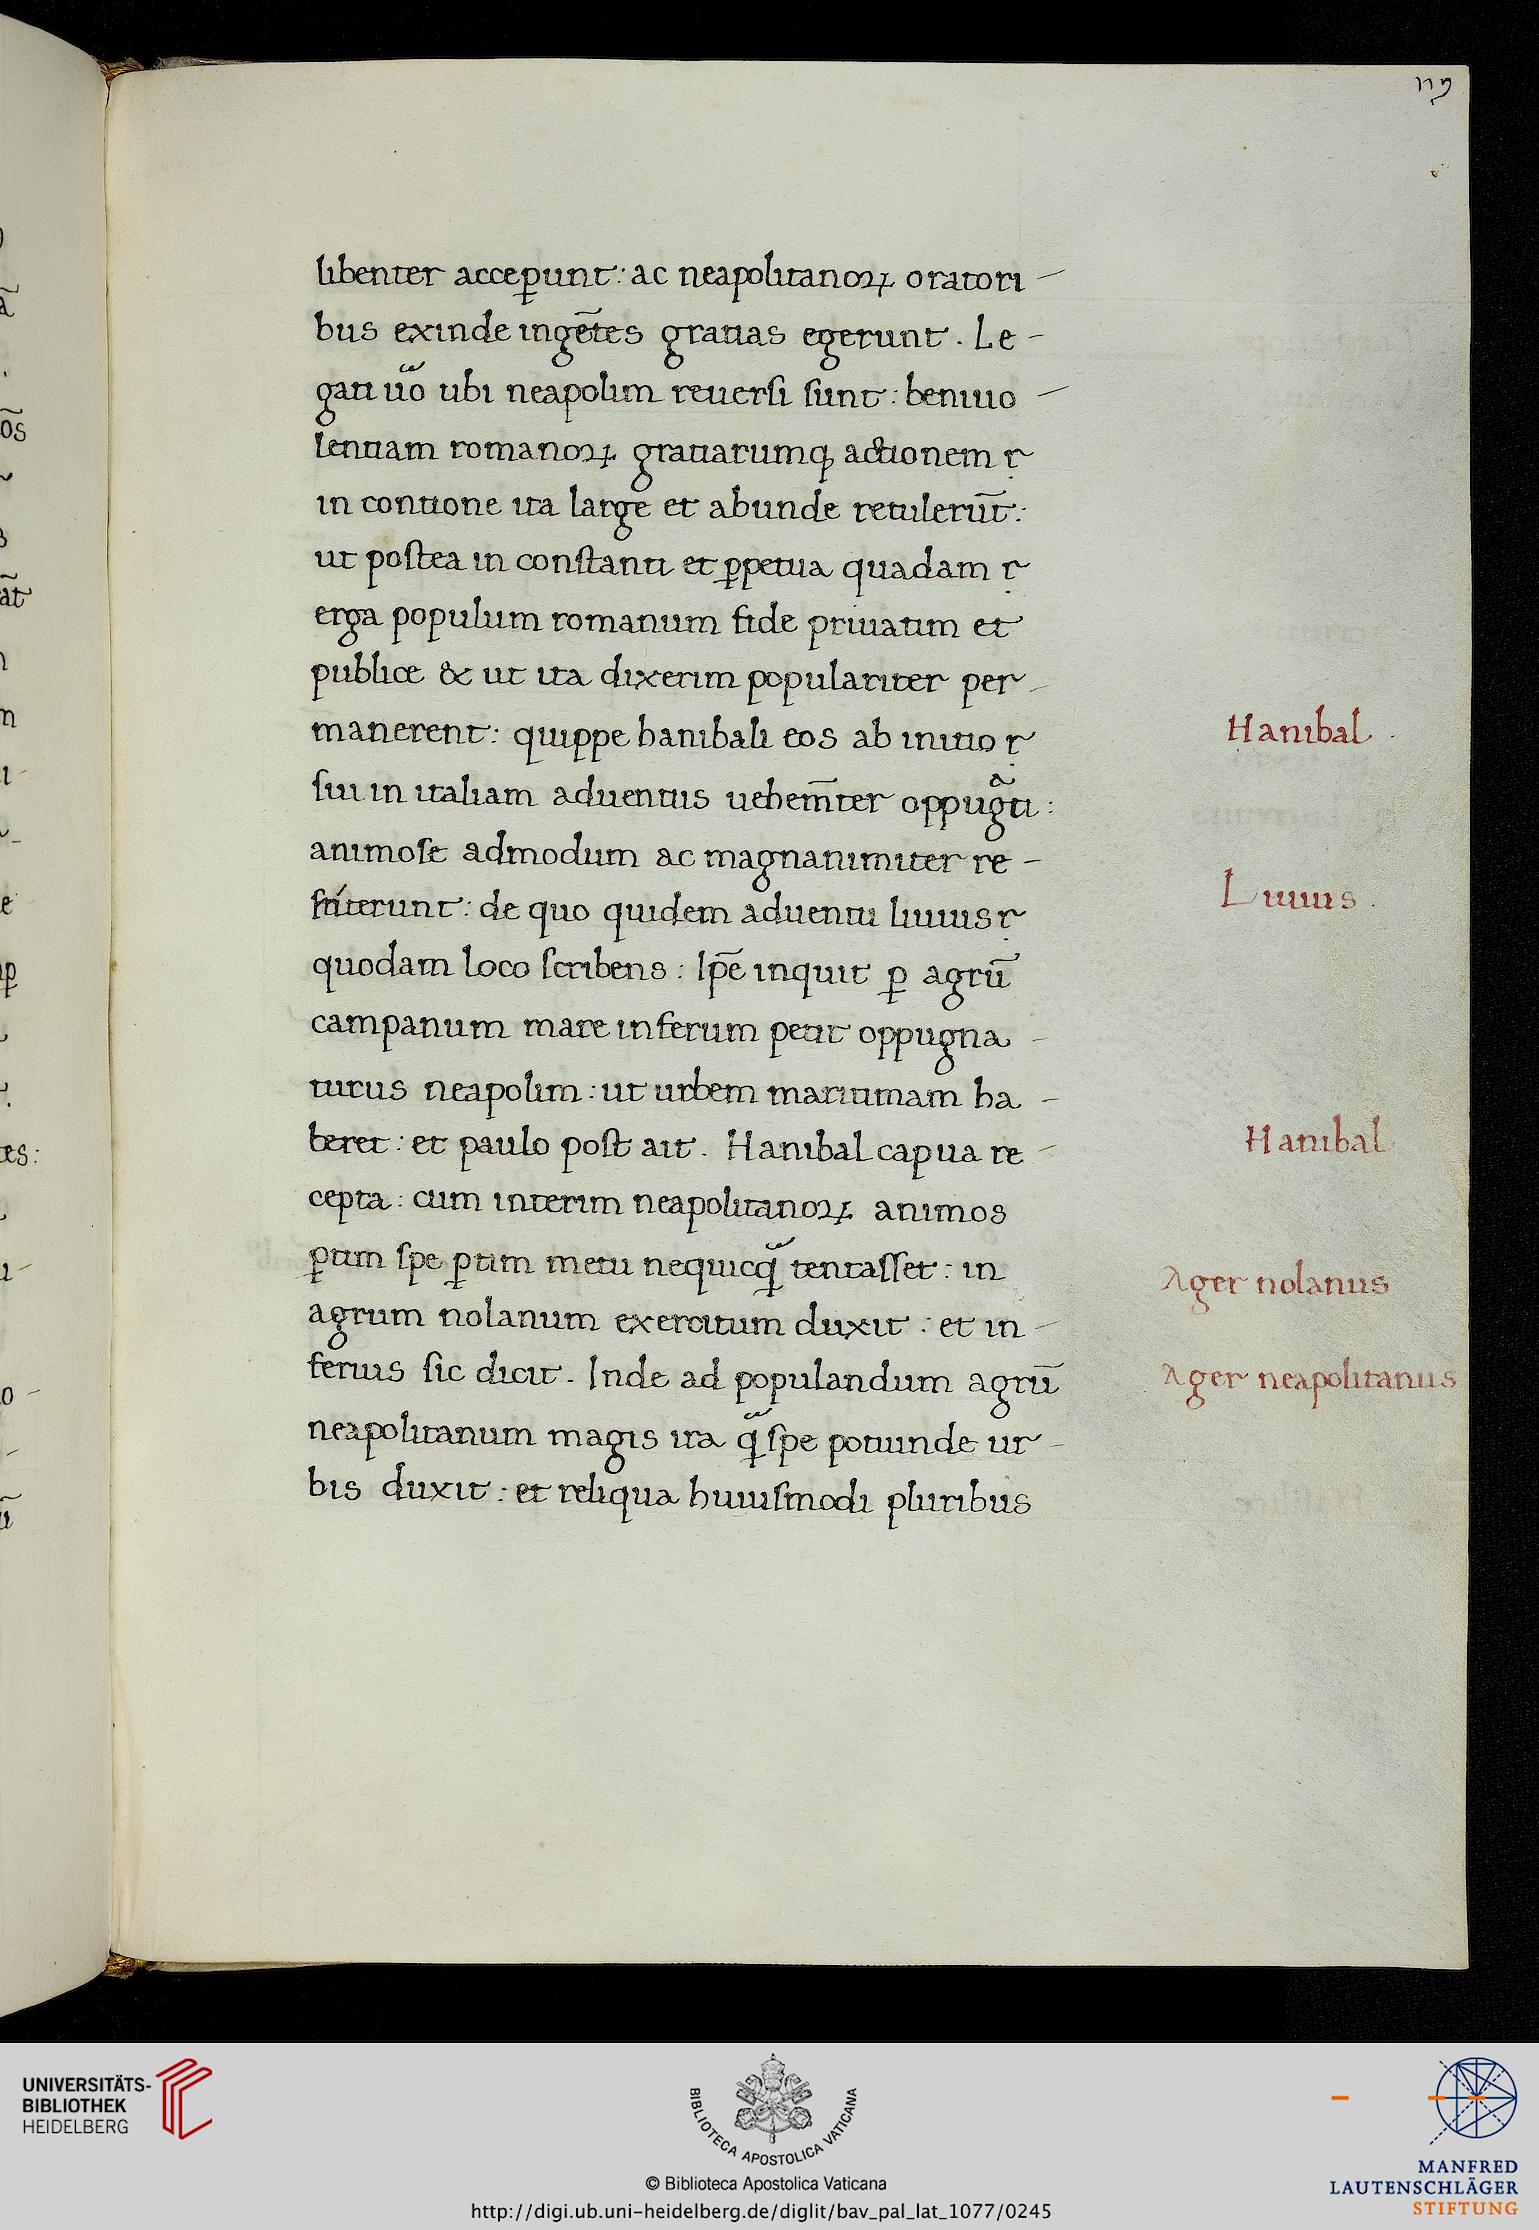 119
libenter acceꝑunt: ac neapolitanoꝝ oratori-
bus exinde ingētes gratias egerunt. Le-
gati uͦo ubi neapolim reuersi sunt: beniuo-
lentiam romanoꝝ gratiarumqꝫ actionem
in contione ita large et abunde retulerūt:
ut postea in constanti et ꝑpetua quadam
erga populum romanum fide priuatim et
publice & ut ita dixerim populariter per-
manerent: quippe hanibali eos ab initio
sui in italiam aduentus uehem̄ter oppugᷓti:
animose admodum ac magnanimiter re-
stiterunt: de quo quidem aduentu liuius
quodam loco scribens: Ip̄e inquit ꝑ agrū
campanum mare inferum petit oppugna-
turus neapolim: ut urbem maritimam ha-
beret: et paulo post ait. Hanibal capua re-
cepta: cum interim neapolitanoꝝ animos
ꝑtim spe ꝑtim metu nequicꝗᷓ tentasset: in
agrum nolanum exercitum duxit: et in-
ferius sic dicit. Inde ad populandum agrū
neapolitanum magis ira ꝗᷓ spe potiunde ur-
bis duxit: et reliqua huiusmodi pluribus
Hanibal.
Liuius.
Hanibal
Ager nolanus
Ager neapolitanus
UNIVERSITÄTS-
BIBLIOTHEK
HEIDELBERG
BIBLIOTECA APOSTOLICA VATICANA
© Biblioteca Apostolica Vaticana
http://digi.ub.uni-heidelberg.de/diglit/bav_pal_lat_1077/0245
MANFRED
LAUTENSCHLÄGER
STIFTUNG